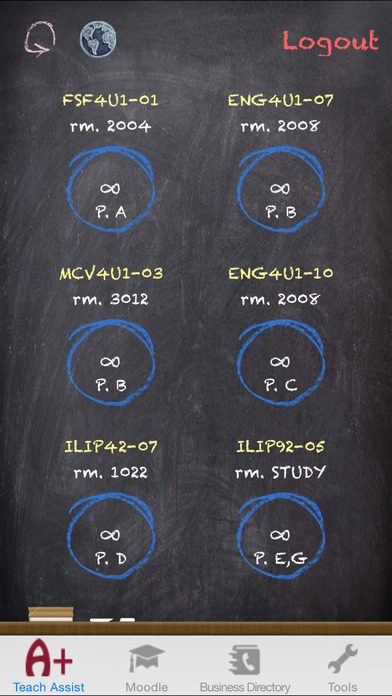 Logout
FSF4U1-01
rm. 2004
∞
P. A
ENG4U1-07
rm. 2008
∞
P. B
MCV4U1-03
rm. 3012
∞
P. B
ENG4U1-10
rm. 2008
∞
P. C
ILIP42-07
rm. 1022
∞
P. D
ILIP92-05
rm. STUDY
∞
P. E,G
A+
Teach Assist
Moodle
Business Directory
Tools